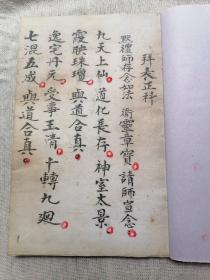 拜表正科
默禮師存念如法 衛靈章寶 請師宣念
九天上仙 道化長存 神室太景
霞映珠璫 與道合真
逸宅丹元 受事玉清 十轉九迴
七混五成 與道合真